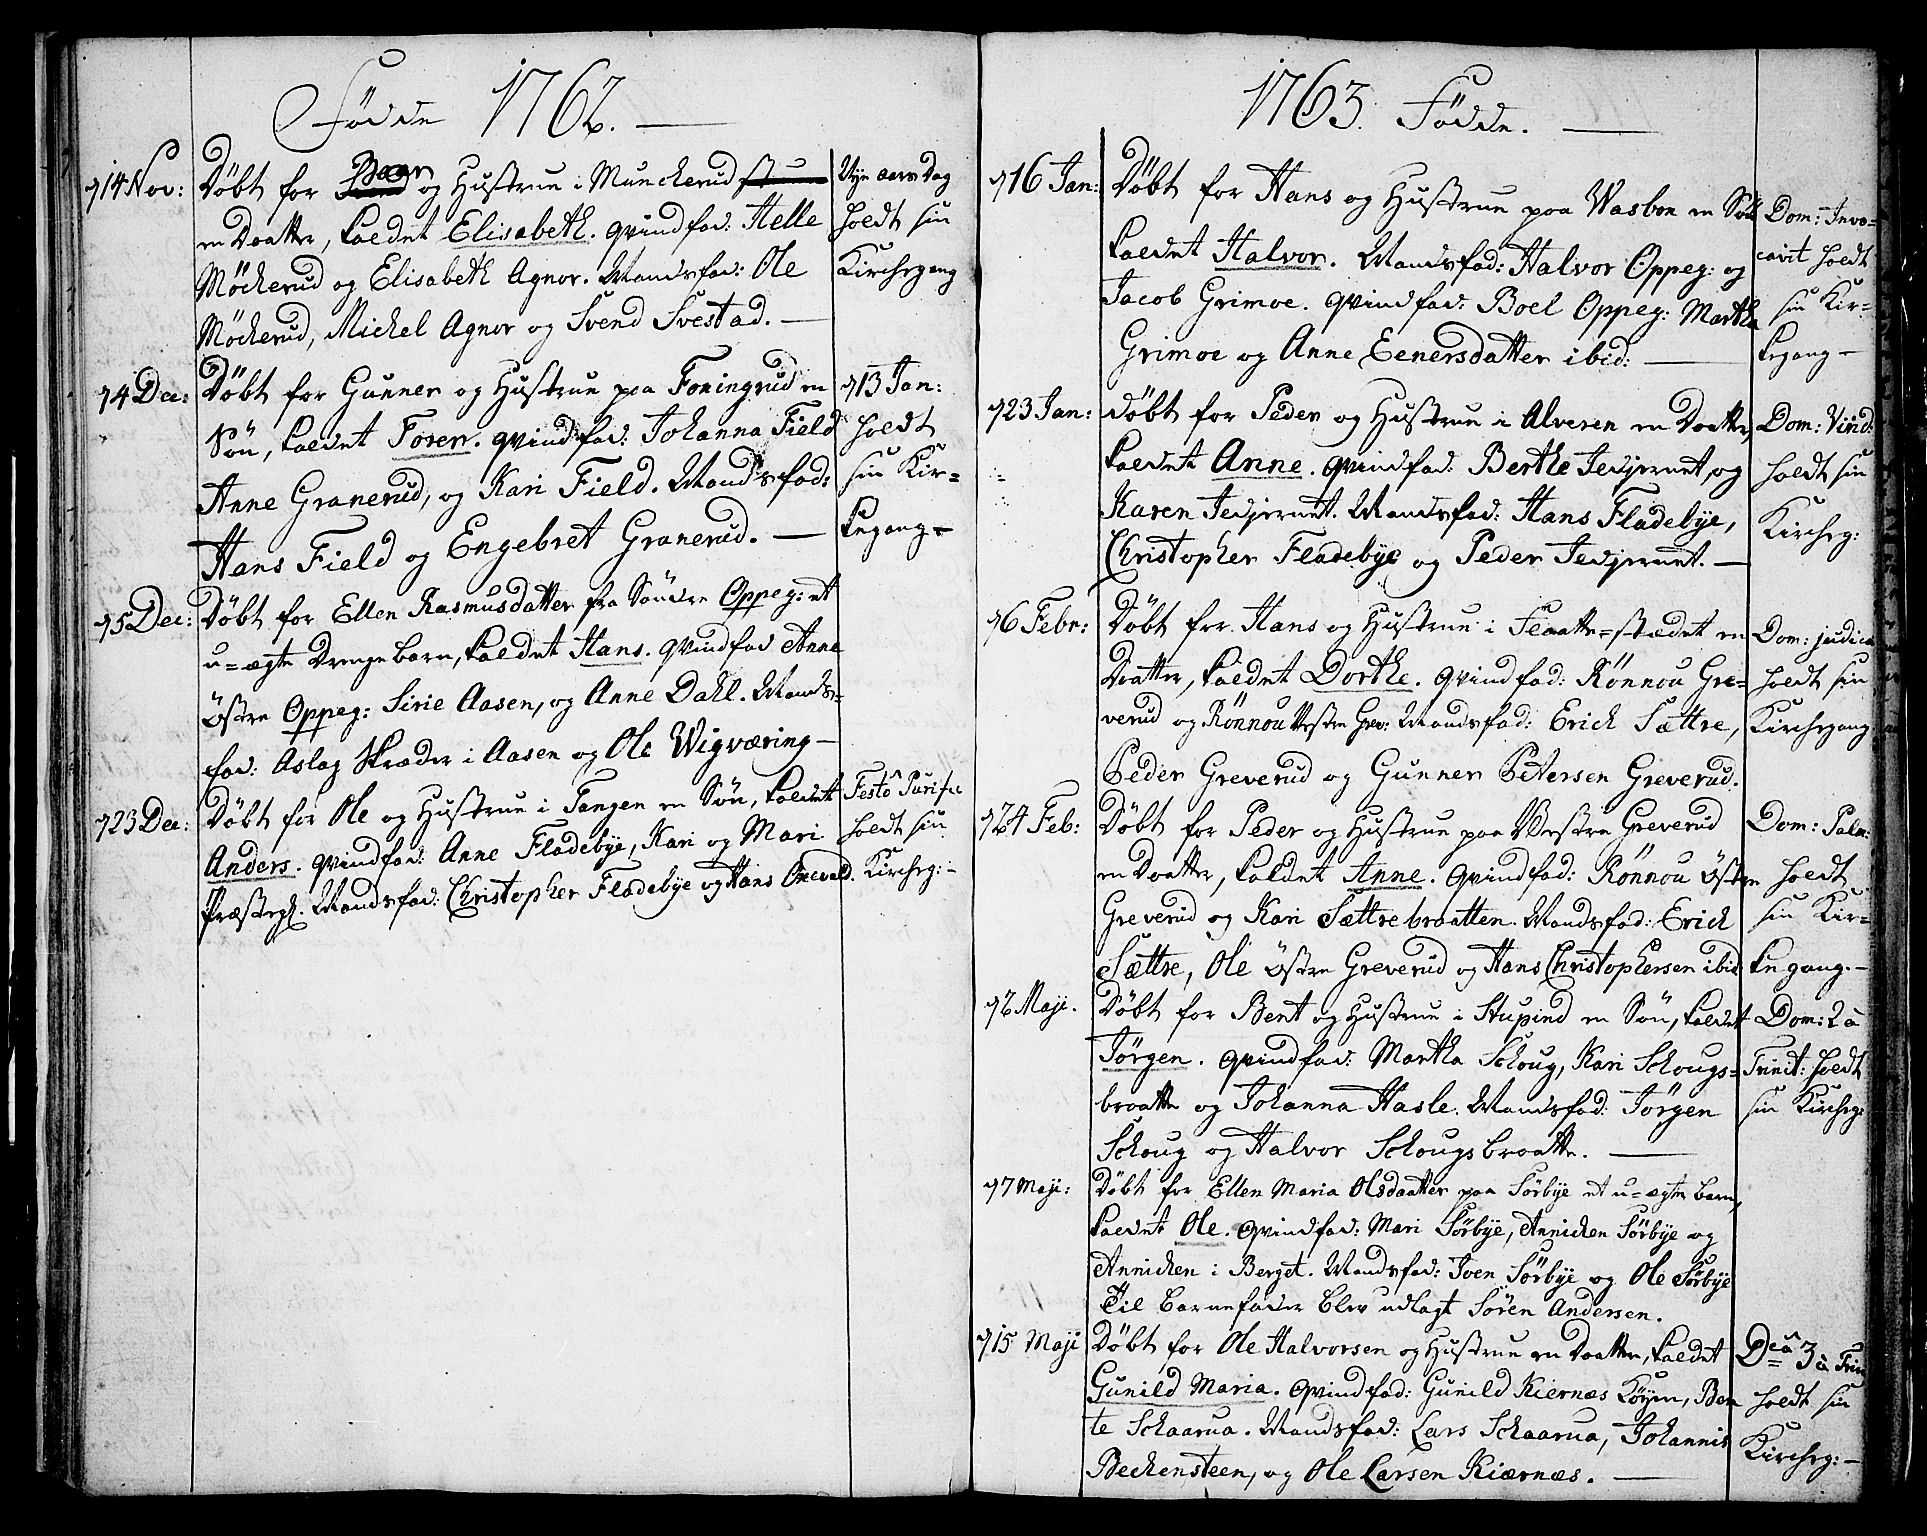 Fødde 1762.
d 14 Nov:
Døbt for og Hustrue i Munckerud
en Daatter, kaldet Elisabeth. Qvindfad: Helle
Möckerud og Elisabeth Agnor. Mandsfad: Ole
Möckerud, Michel Agnor og Svend Svestad.
Nye aars Dag
holdt sin
Kirchegang
d 4 Dec:
Døbt for Gunner og Hustrue paa Foningrud en
Søn, kaldet Toren. Qvindfad: Johanna Field
Anne Granerud, og Kari Field. Mandsfad:
Hans Field og Engebret Granerud.
d 13 Jan:
holdt
sin Kir=
kegang
d 5 Dec:
Døbt for Ellen Rasmusdatter fra Søndre Oppeg: et
u=ægte Drengebarn, kaldet Hans. Qvindfad Anne
Østre Oppeg: Sirie Aasen, og Anne Dahl. Mands=
fad: Aslag Skræder i Aasen og Ole Wigværing
d 23 Dec:
Døbt for Ole og Hustrue i Tangen en Søn, kaldet
Anders. Qvindfad: Anne Fladebye, Kari og Mari
Præstegl. Mandsfad: Christopher Fladebye og Hans Onevold.
Festo Purific
holdt sin
Kircheg:
1763. Fødde.
d 16 Jan:
Døbt for Hans og Hustrue paa Wasbon en Søn
kaldet Halvor. Mandsfad: Halvor Oppeg: og
Jacob Grimoe. Qvindfad: Boel Oppeg: Martha
Grimoe og Anne Eenersdatter ibid:
Dom: Invo=
cavit holdt
sin Kir=
kegang
d 23 Jan:
døbt for Peder og Hustrue i Alveren en Daatter,
kaldet Anne. Qvindfad: Berthe Tedjernet, og
Karen Tedjernet. Mandsfad: Hans Fladebye,
Christopher Fladebye og Peder Tedjernet.
Dom: Viid:
holdt sin
Kircheg:
d 6 Febr:
Døbt for Hans og Hustrue i Slaatte=stædet en
Daatter, kaldet Dorthe. Qvindfad: Rönnou Gre=
verud og Rönnou Vestre Grev: Mandsfad: Erich Sættre,
Peder Greverud og Gunner Petersen Greverud.
Dom: judica
holdt sin
Kirchegang
d 24 Feb:
Døbt for Peder og Hustrue paa Westre Greverud
en Daatter, kaldet Anne. Qvindfad: Rönnou Østre
Greverud og Kari Sættrebraatten. Mandsfad: Erich
Sættre, Ole Østre Greverud og Hans Christophersen ibid
Dom: Palm:
holdt
sin Kir=
kegang.
d 2 Maji.
Døbt for Bent og Hustrue i Stupind en Søn, kaldet
Jörgen. Qvindfad: Martha Schoug, Kari Schougs=
braatte og Johanna Hasle. Mandsfad: Jörgen
Schoug og Halvor Schougsbraatte.
Dom: 2 à
Trinit: holdt
sin Kircheg:
d 7 Maji:
Døbt for Ellen Maria Olsdaatter paa Sörbye et u=ægte barn,
kaldet Ole. Qvindfad: Mari Sörbye, Annichen Sörbye og
Annichen i Berget. Mandsfad: Iven Sörbye og Ole Sörbye
Til Barnefader blev udlagt Sören Andersen.
d 15 Maji
Døbt for Ole Halvorsen og Hustrue en Daatter, kaldet
Gunild Maria. Qvindfad: Gunild Kiernæs Köyen, Ben
te Schaarua. Mandsfad: Lars Schaarua, Johannis
Bechensteen, og Ole Larsen Kiærnæs.
Dca 3 à Trin
holdt sin
Kircheg: